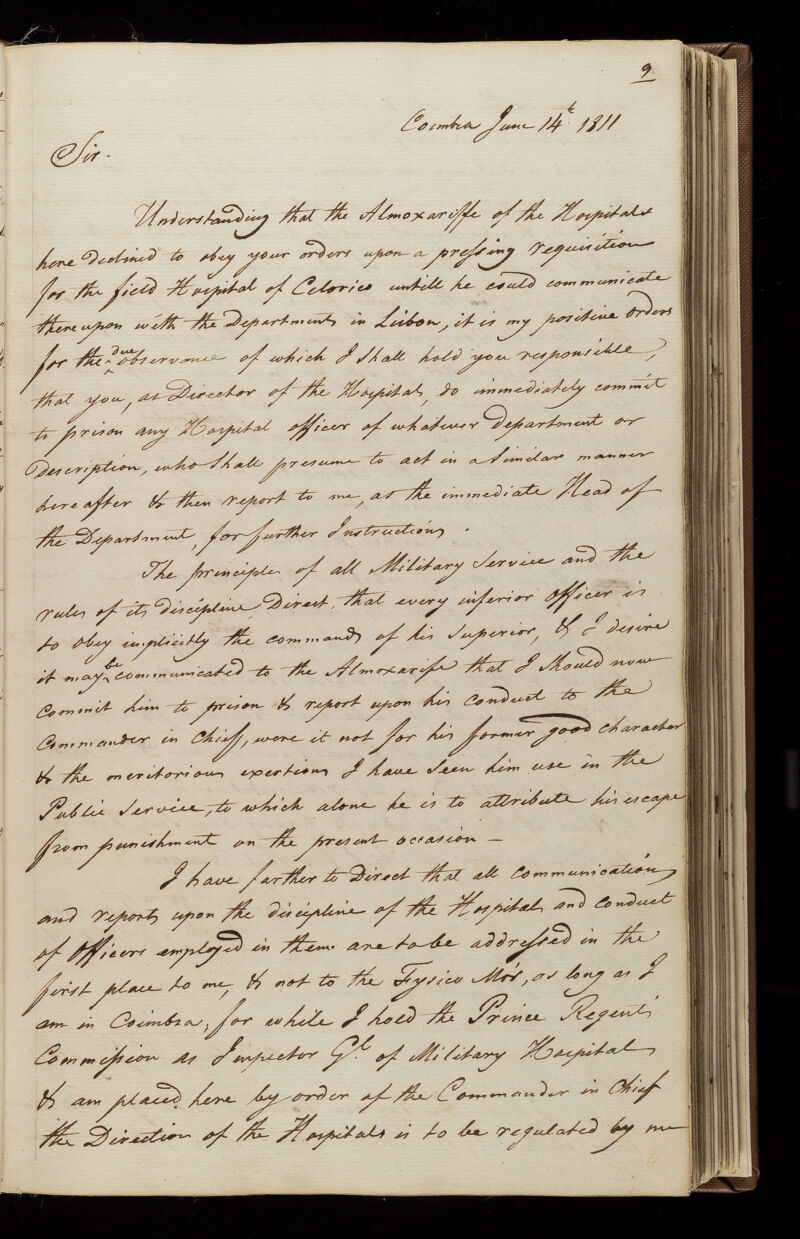 9
Coimbra June 14th. 1811
Sir.
Understanding that the Almoxariffe of the Hospitals
here declined to obey your orders upon a pressing requisition
for the field Hospital of Celorico untill he could communicate
thereupon with the Departments in Lisbon, it is my positive orders
for the due observance of which I shall hold you responsible,
that you, as Director of the Hospitals, do immediately commit
to prison any Hospital officer of whatever department or
Description, who shall presume to act in a similar manner
hereafter & then report to me, as the immediate Head of
the Department, for further Instructions.
The principles of all Military Service and the
rules of its discipline Direct, that every inferior officer is
to obey implicitly the commands of his Superior, & I desire
it may be communicated to the Almoxarife that I should now
commit him to prison & report upon his conduct to the
Commander in Chief, were it not for his former good character
& the meritorious exertions I have seen him use in the
Public Service, to which alone he is to attribute his escape
from punishment on the present occasion —
I have farther to Direct that all communications
and reports upon the discipline of the Hospitals and conduct
of officers employed in them are to be addressed in the
first place to me, & not to the Fysico Môr, as long as I
am in Coimbra, for while I hold the Prince Regent's
Commission as Inspector Gl. of Military Hospitals
& am placed here by order of the Commander in Chief
the Direction of the Hospitals is to be regulated by me